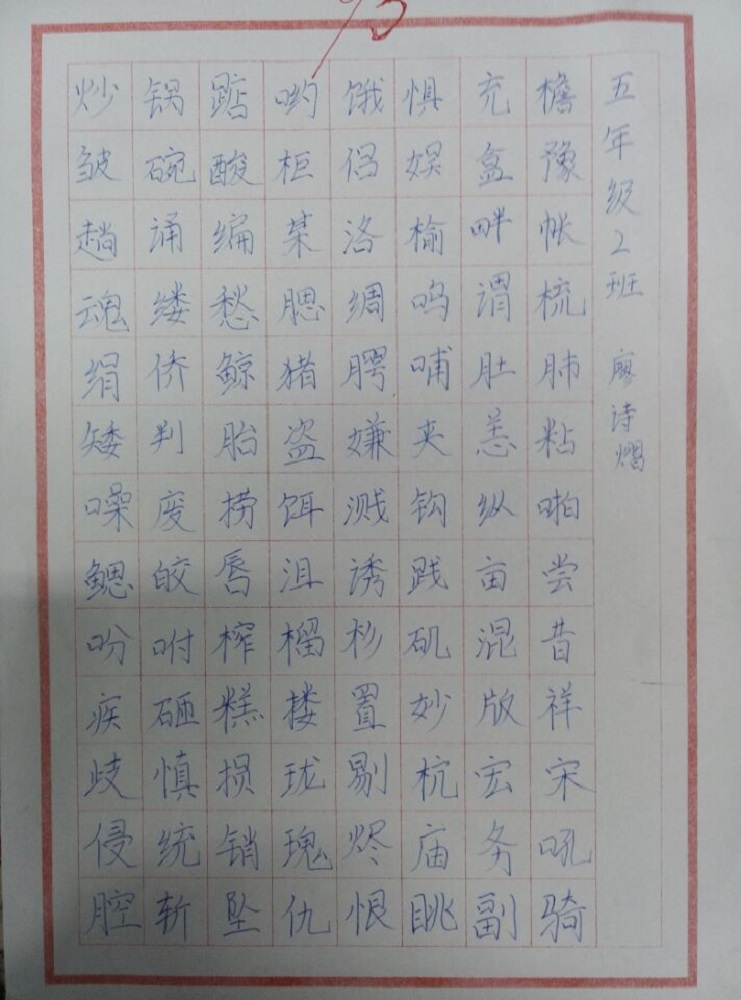 五年级2班 廖诗熠
檐豫帐梳肺粘啪尝昔祥宋吼骑
充盒畔谓肚恙纵亩混版宏务副
惧娱榆呜哺夹钩践矾妙杭庙眺
饿侣洛绸腭嫌溅诱杉置剔烬恨
哟柜某腮猪盗饵沮榴搂珑瑰仇
踮酸编愁鲸胎捞唇榨糕损销坠
锅碗诵缕侨判废皎咐砸慎统斩
炒皱趟魂绢矮噪鳃吩疾歧侵腔